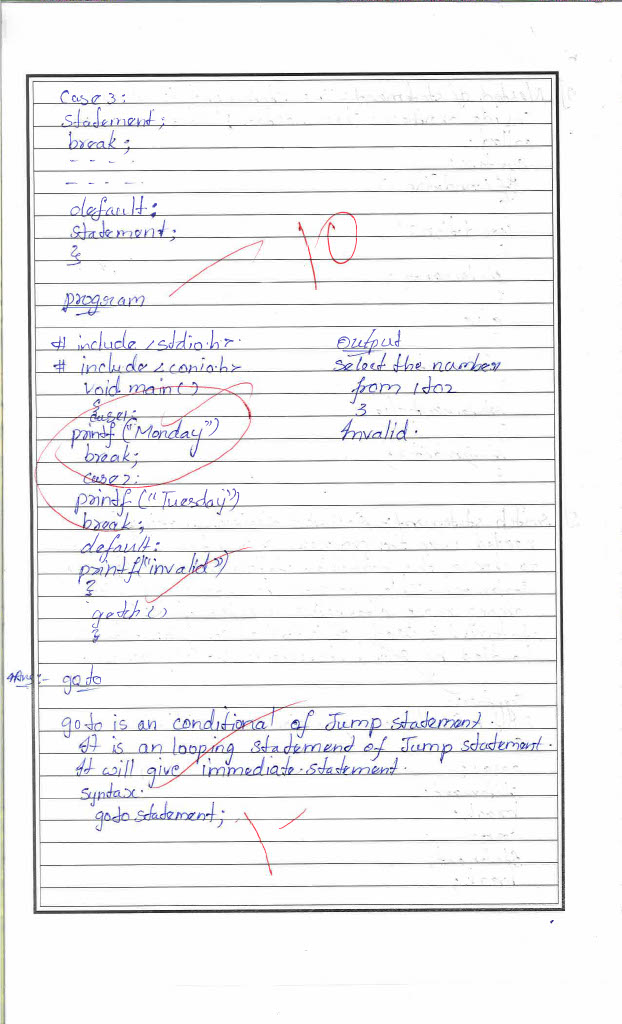 Case 3:
Statement;
break;
- - - -
- - - - -
default:
statement;
}
10
program
# include <stdio.h>
# include <conio.h>
void main()
{
case1:
printf ("Monday")
break;
case2:
printf ("Tuesday")
break;
default:
printf("invalid")
}
getch()
}
Output
select the number
from 1to2
3
Invalid.
goto
goto is an conditional of Jump statement.
It is an looping statement of Jump statement.
It will give immediate statement.
syntax.
goto statement;